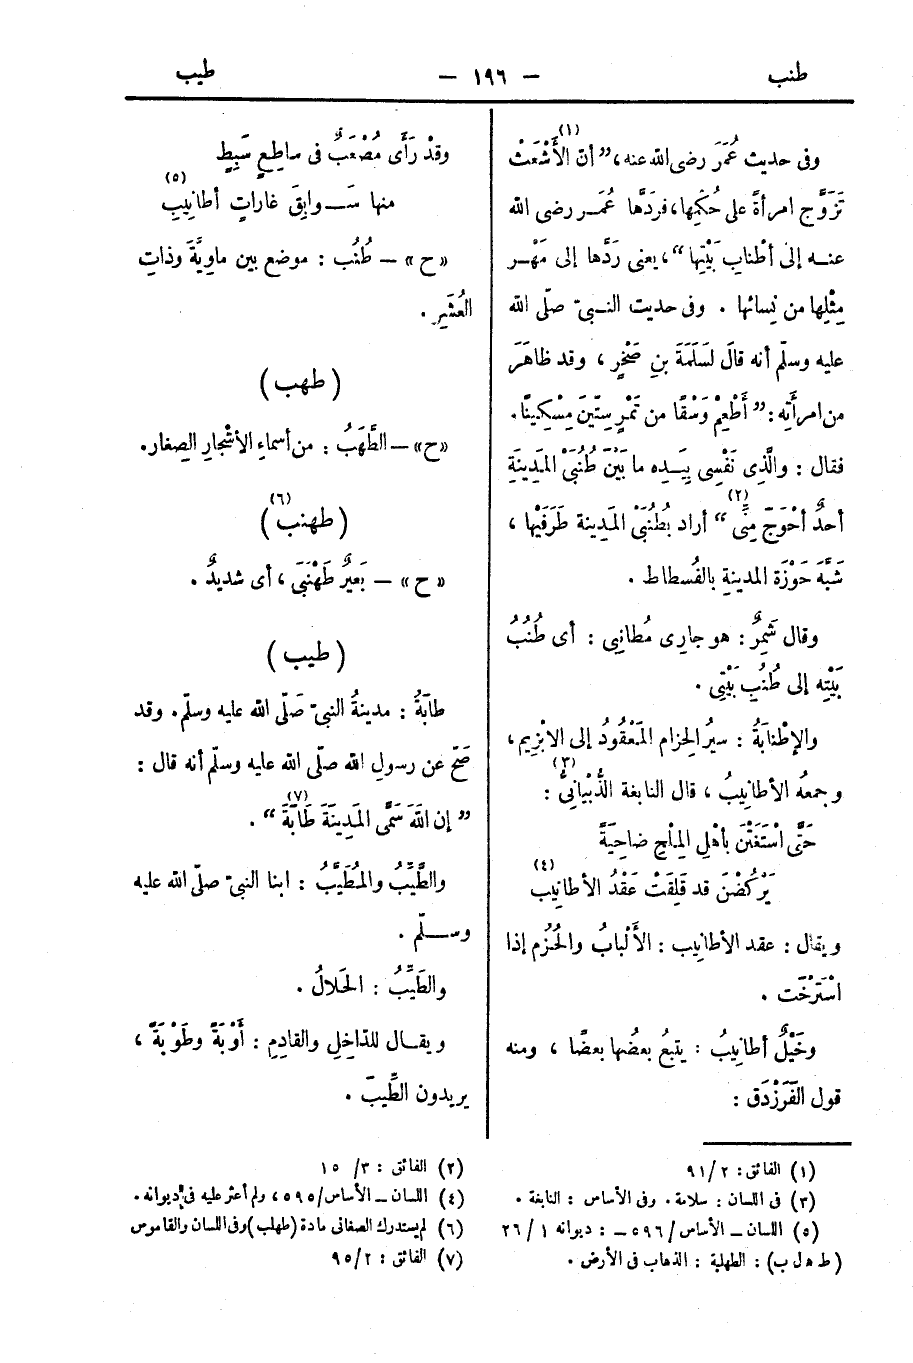 طنب — ١٩٦ — طيب
وفى حديث عُمَرَ رضى الله عنه،(١) ”أنّ الأَشْعَثَ
تَزَوَّج امرأةً على حُكْمِها، فردَّها عُمَــر رضى الله
عنــه إلى أَطْنابِ بَيْتِها“، يعنى رَدَّها إلى مَهْــر
مِثْلِها من نِسائها . وفى حديث النــبىّ صلّى الله
عليه وسلّم أنه قالَ لسَلَمَةَ بنِ صَخْرٍ ، وقد ظاهَرَ
من امرأَتِه : ”أَطْعِمْ وَسْقًا من تَمْرٍ سِتِّينَ مِسْكِينًا.
فقال : والَّذِى نَفْسِى بِيَــدِه ما بَيْنَ طُنُبَىِ المَدِينَةِ
أحدٌ أَحْوَجَ مِنِّى“(٢) أراد بطُنُبَىِ المَدِينة طَرَفَيْها ،
شَبَّهَ حَوْزَة المدينةِ بالفُسطاط .
وقال شَمِرٌ : هو جارِى مُطانِبِى : أى طُنُبُ
بَيْتِه إلى طُنُبِ بَيْتِى .
والإِطْنابَةُ : سيرُ الحِزام المَعْقُودُ إلى الابْزِيم ،
وجمعُه الأطانِيبُ ، قال النابغة الذُّبْيانِىُّ(٣) :
حَتَّى اسْتَغَثْنَ بأهْلِ المِلْحِ ضاحِيَةً
يَرْكُضْنَ قد قَلِقَتْ عَقْدُ الأطانِيبِ(٤)
ويقال : عقد الأطانِيب : الأَلْبابُ والحُزُم إذا
اسْتَرْخَت .
وخَيْلٌ أطانِيبُ : يتبعُ بعضُها بعضًا ، ومنه
قول الفَرَزْدَق :
وقدْ رَأَى مُصْعَبٌ فى ساطِعٍ سَبِطٍ
منها سَــوابِقَ غاراتٍ أطانِيبِ(٥)
«ح» – طُنُب : موضع بين ماوِيَّةَ وذاتِ
العُشَرِ .
(طهب)
«ح» – الطَّهَبُ : من أسماءِ الأشْجارِ الصِغار.
(طهنب)(٦)
«ح» – بَعِيرٌ طَهْنَبَى ، أى شديدٌ .
(طيب)
طابَةُ : مدينةُ النبىّ صَلّى الله عليه وسلّم. وقد
صَحّ عن رسولِ الله صلّى الله عليه وسلّم أنه قال :
”إن اللهَ سَمَّى المَدِينَةَ طَابَةَ“(٧) .
والطَّيِّبُ والمُطَيَّبُ : ابنا النبىّ صلّى الله عليه
وســلّم .
والطَيِّبُ : الحَلالُ .
ويقــال للدّاخِلِ والقادِمِ : أَوْبَةً وطَوْبَةً ،
يريدون الطِّيبَ .
(١) الفائق : ٩١/٢
(٢) الفائق : ٣/ ١٥
(٣) فى اللسان : سلامة . وفى الأساس : النابغة .
(٤) اللسان – الأساس/٥٩٥ ، ولم أعثر عليه فى ديوانه .
(٥) اللسان – الأساس/٥٩٦ – : ديوانه ١ /٢٦
(٦) لم يستدرك الصغانى مادة (طهلب) وفى اللسان والقاموس
(ط ه ل ب) : الطهلبة : الذهاب فى الأرض .
(٧) الفائق : ٩٥/٢